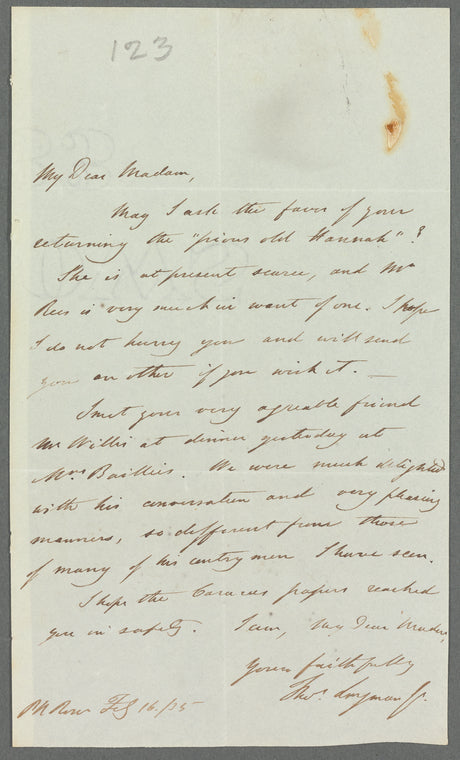 123
My Dear Madam,
May I ask the favor of your
returning the "pious old Hannah"?
She is at present scarce, and Mr
Rees is very much in want of one. I hope
I do not hurry you and will send
you another if you wish it. —
I met your very agreable friend
Mr Willis at dinner yesterday at
Mrs Baillies. We were much delighted
with his conversation and very pleasing
manners, so different from those
of many of his contrymen I have seen.
I hope the Caracas papers reached
you in safety. I am, My Dear Madam,
Yours faithfully
Thos. Longman Jr.
P N Row Feb 16. /35